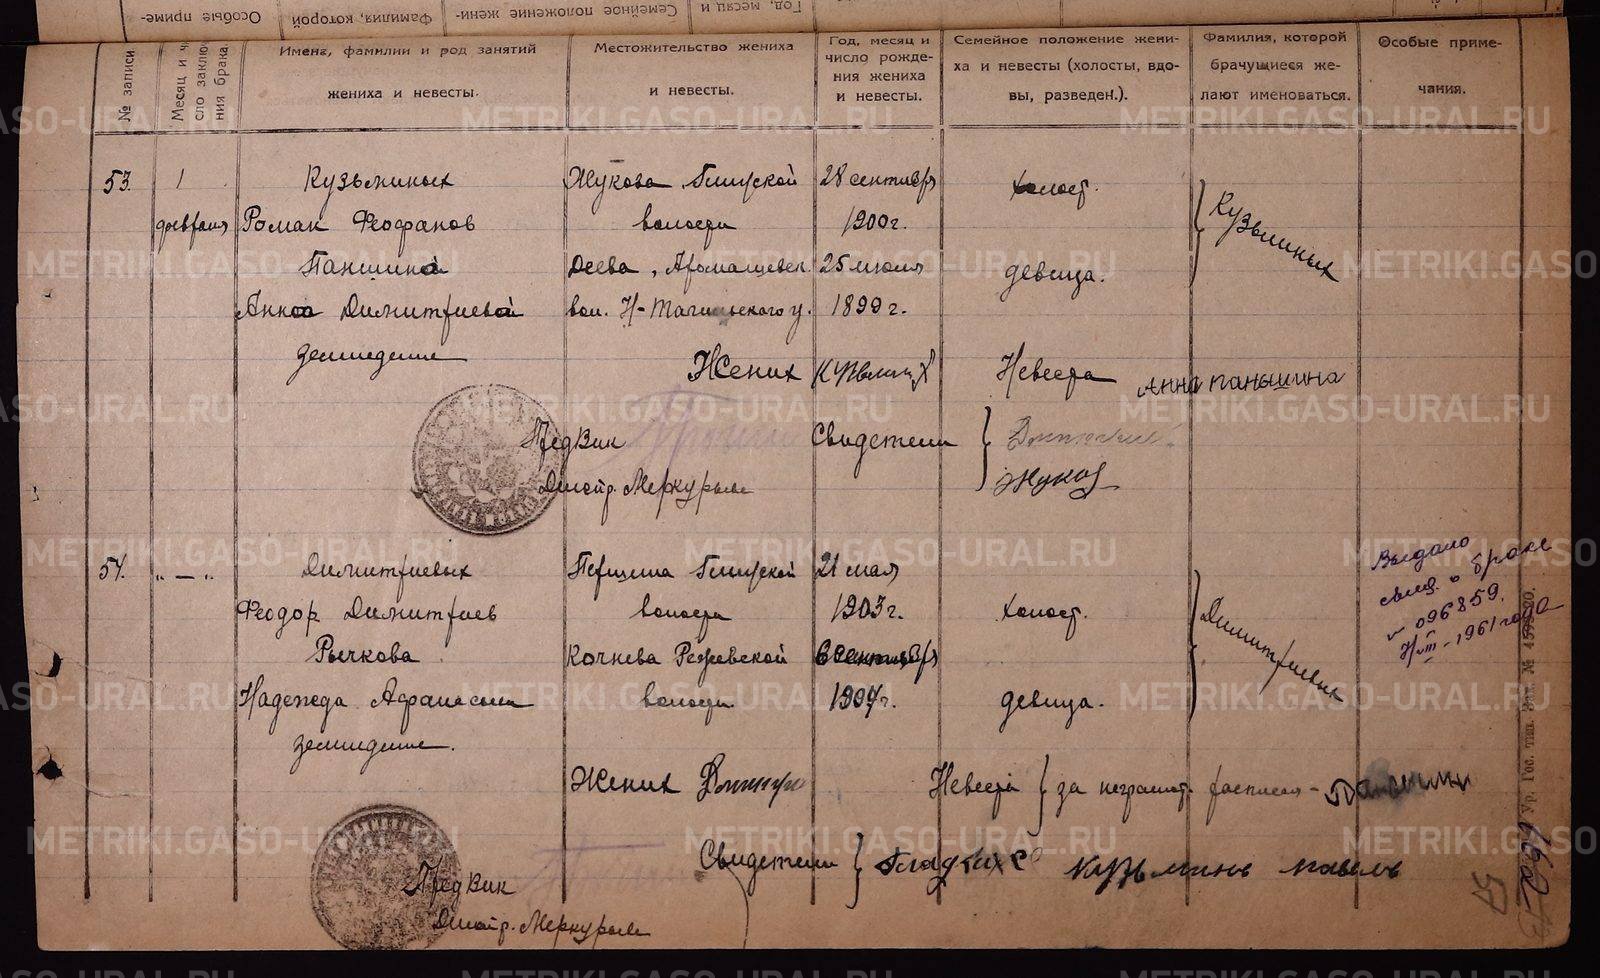 Особые приме-
Фамилия, которой
Семейное положение жени-
Год, месяц и
№ записи.
Месяц и чи-
сло заключе-
ния брака.
Имена, фамилии и род занятий
жениха и невесты.
Местожительство жениха
и невесты.
Год, месяц и
число рожде-
ния жениха
и невесты.
Семейное положение жени-
ха и невесты (холосты, вдо-
вы, разведен.).
Фамилия, которой
брачущиеся же-
лают именоваться.
Особые приме-
чания.
53.
1
февраля
Кузьминых
Роман Феофанов
Паншина
Анна Димитриева
земледелие
Жукова
волости
Деева, Арамашевск.
вол. Н-Тагильского у.
28 сентября
1900 г.
25 июля
1899 г.
холост.
девица.
Кузьминых
Жених
Невеста
Анна Паньшина
ПредВик
Дмотр. Меркурьев
Свидетели
Жуков
54.
„ — „
Димитриевых
Феодор Димитриев
Рычкова
Надежда
земледелие.
Першина
волости
Кочнева Режевской
волости
21 мая
1903 г.
6 сентября
1904 г.
холост.
девица.
Димитриевых
Выдано
свид. о браке
096859.
1961 года
Жених
Невеста
за неграмот. расписался -
Свидетели
Гладких С
Кузьминъ Павелъ
ПредВик
Дмотр. Меркурьев
METRIKI.GASO-URAL.RU